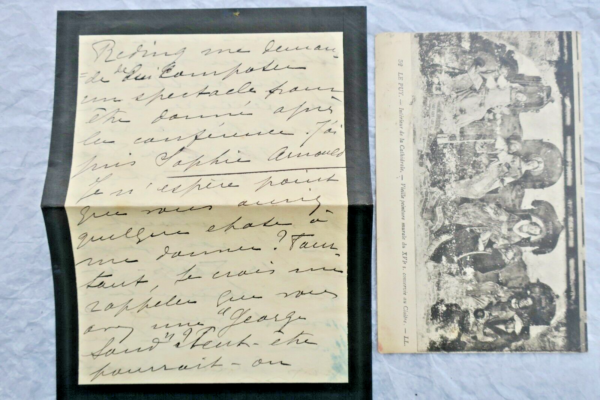 Reding me deman-
-de de lui composer
un spectacle pour
être donné après
la conférence. J'ai
pris Sophie Arnould
Je n'espère point
que vous auriez
quelque chose à
me donner? Pour-
tant, je crois me
rappeler que vous
avez une "George
Sand"? Peut-être
pourrait-on
70 LE PUY. — Intérieur de la Cathédrale. — Vieille peinture murale du XVe s. — LL.